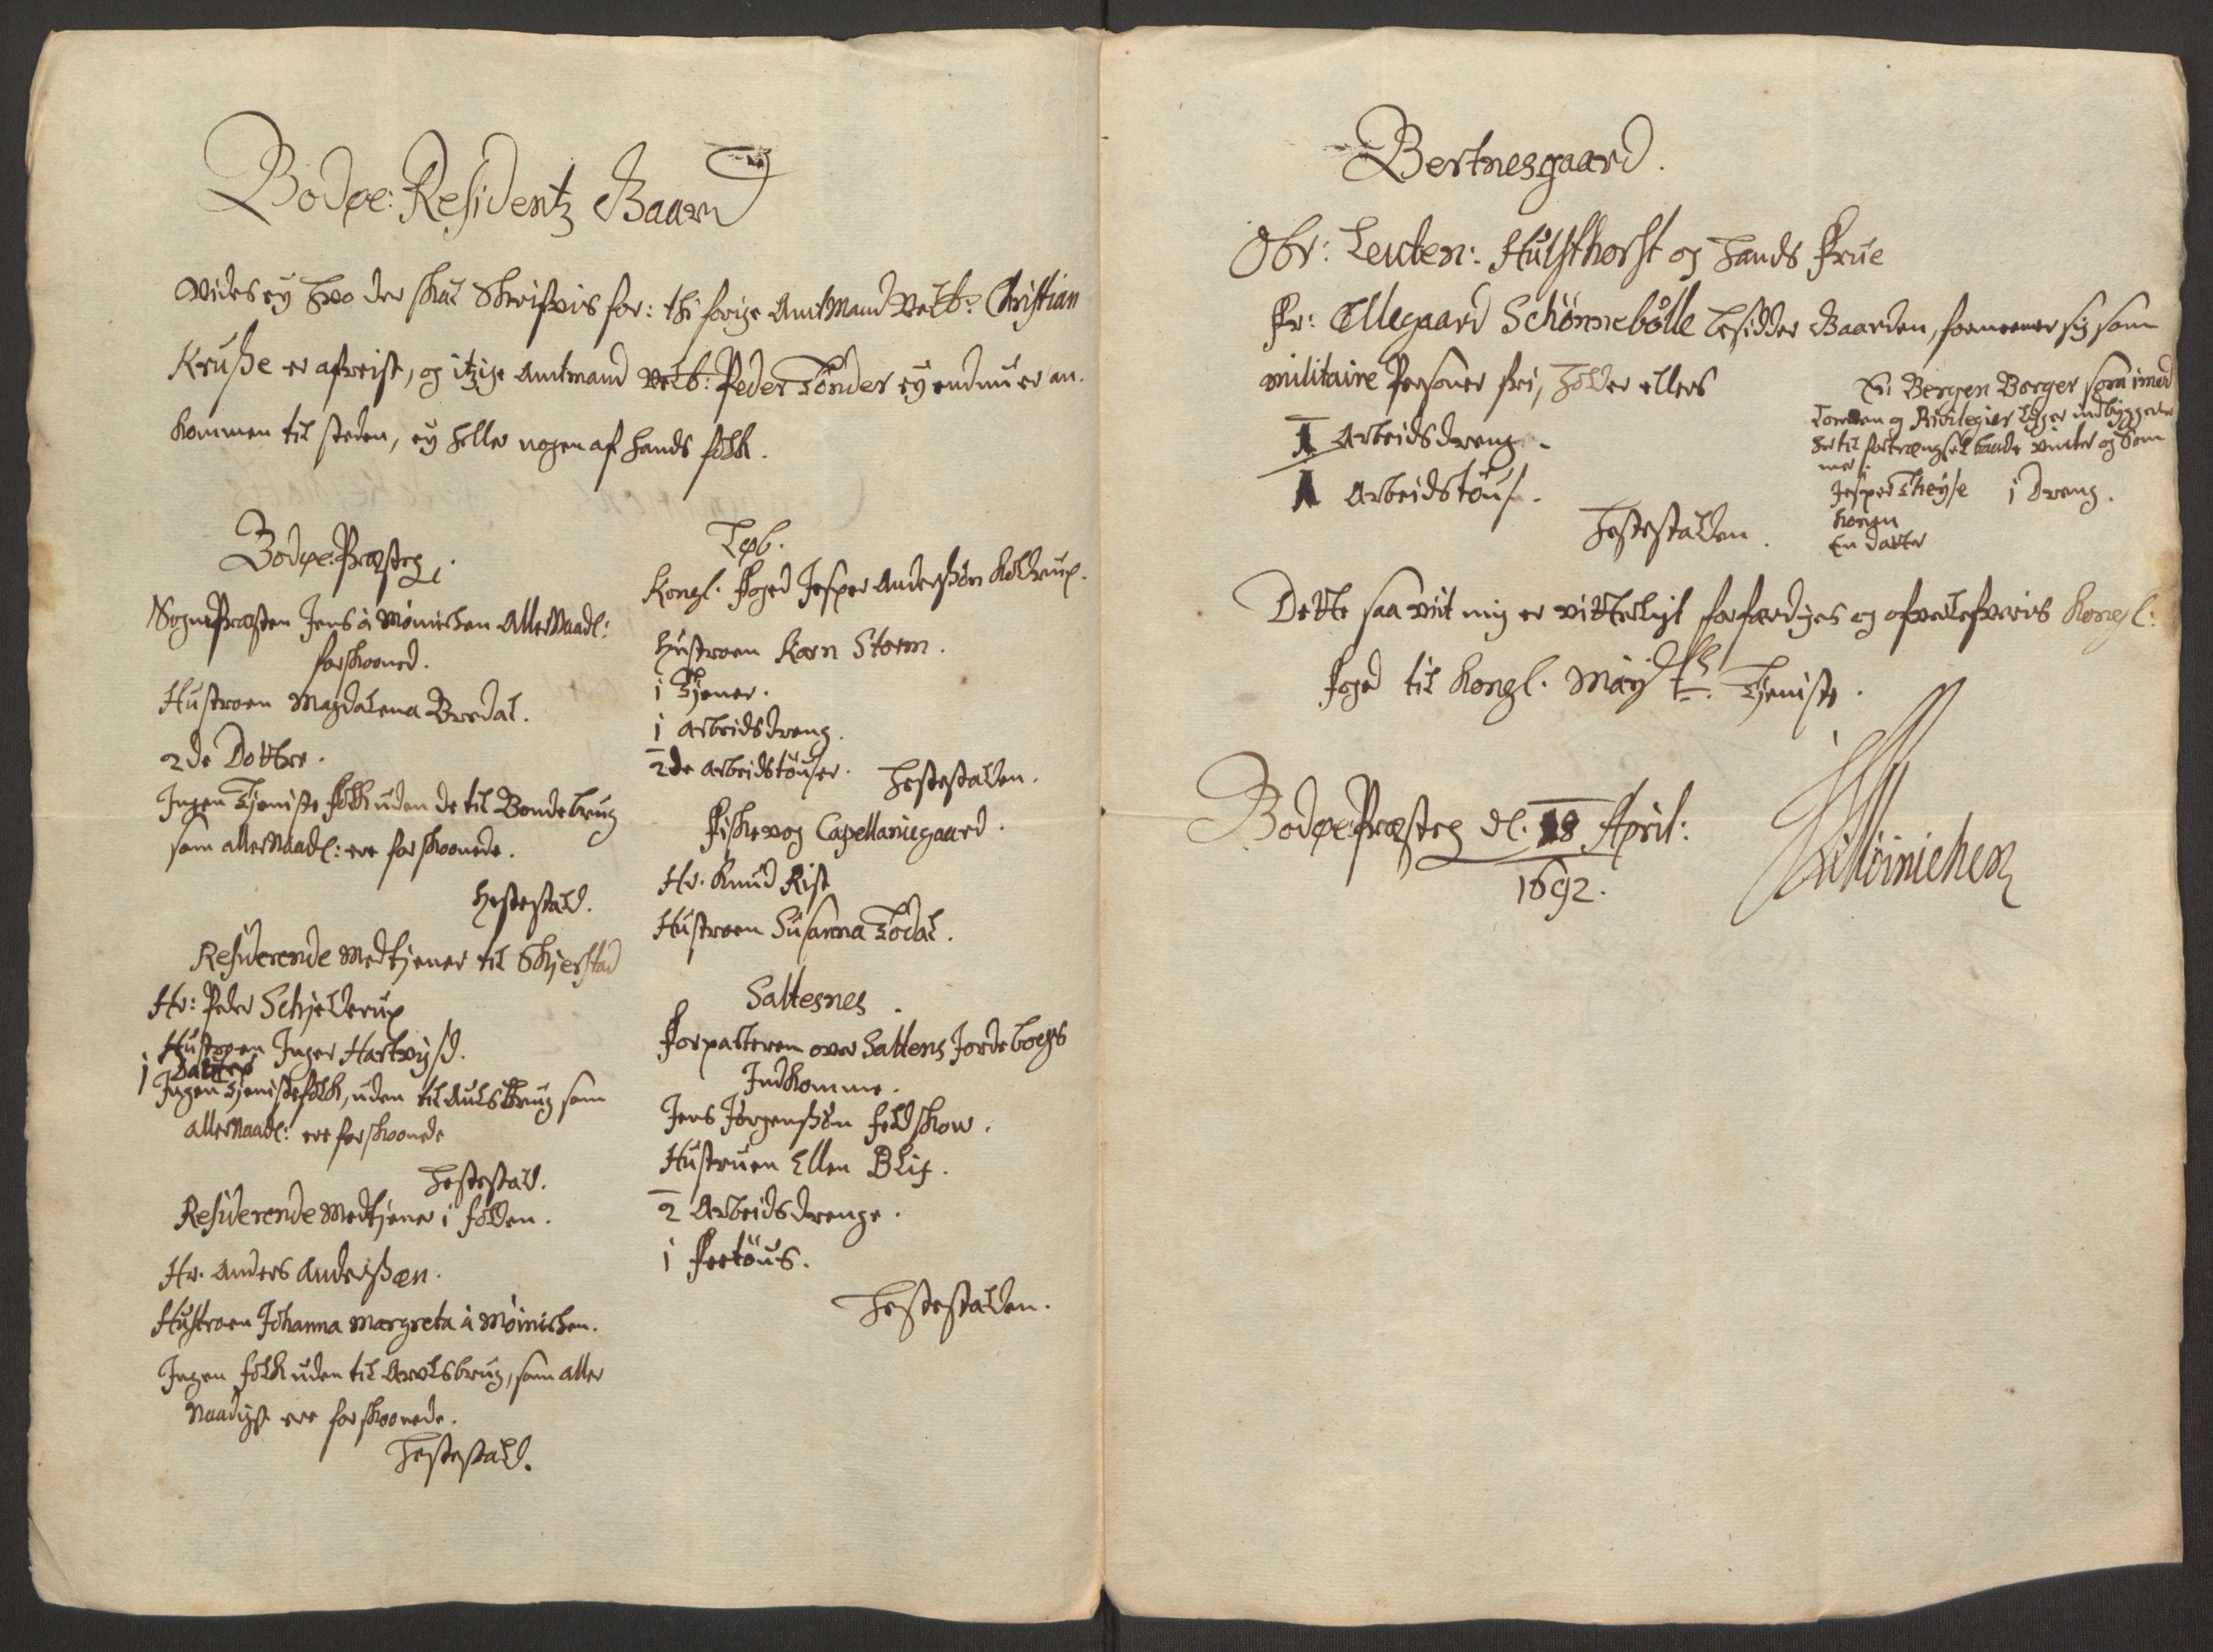 Bodøe: Residentz Gaard
Vides ey hvo der skal Skrifvis for: thi forige Amtmand Velb: Christian
Kruße er afreist, og itzige Amtmand Velb: Peder Tønder ey endnu er an-
kommen til steden, ey heller nogen af hands folk.
Bodøe: Præsteg.
SognePræsten Jens à Mønichen AllerNaadl:
forskooned.
Hustroen Magdalena Bredal.
2de Døttre.
Ingen Tjeniste folk uden de til Bondebrug
som allerNaadl: ere forskoonede.
Hestestald.
Residerende Medtjener til Skjerstad
Hr: Peder Schjelderup
Hustroen Inger Hartvigsd.
1 Datter
Ingen Tjenistefolk, uden til Aulsbrug som
allerNaadl: ere forskoonede
Hestestald.
Residerende Medtjener i folden.
Hr. Anders Anderßøn.
Hustroen Johanna Margreta à Mønichen.
Ingen folk uden til Avlsbrug, som aller
Naadigst ere forskoonede.
Hestestald.
Løb.
Kongl. Foged Jesper Anderßøn Koldrup.
Hustroen Karn Storm.
1 Tjener.
1 Arbeidsdreng.
2de Arbeidstøuser.
Hestestalden.
Fiskevog Capellaniegaard.
Hr. Knud Rist
Hustroen Susanna Todal.
Saltesnes.
Forpacteren over Saltens Jordebogs
Indkomme.
Jens Jørgenßøn feldskow.
Hustruen Ellen Blix.
2 Arbeidsdrenge.
1 Fretøus.
Hestestalden.
Bertnesgaard.
Obr: Leuten: Hulsthorst og hands Frue
Fr: Ellegaard Schønnebølle besidder Gaarden, formeener sig som
militaire Personer fri, holder ellers
1 Arbeidsdreng.
1 Arbeidstøus.
Hestestalden.
En Bergen Borger som imod
Loven og Privilegier ligger indbyggerne
her til fortrængsel baade vinter og Som
mer:
Jesper Theyse 1 dreng.
Konen
En datter
Dette saa vit mig er vitterligt forfærdiges og ofverlefveris Kongl:
Foged til Kongl. Maytz. Tjeniste.
Bodøe Præsteg dl. 18 April:
1692.
JàMöinichen